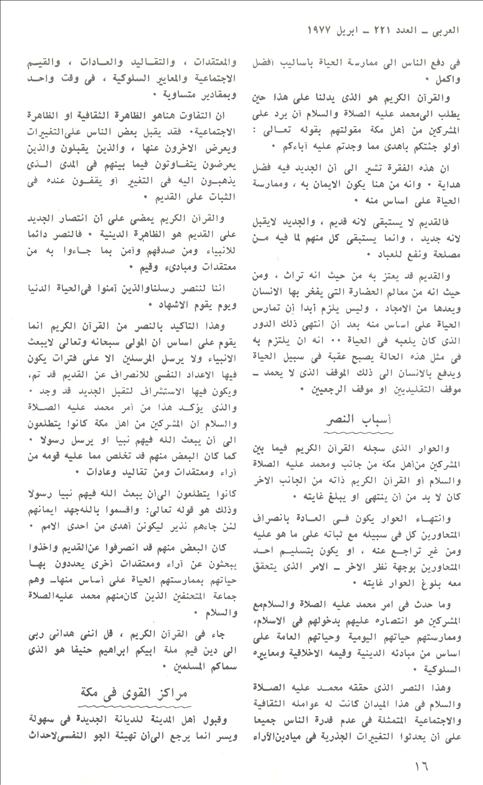 العربي ــ العدد ٢٢١ ــ ابريل ١٩٧٧
فى دفع الناس الى ممارسة الحياة بأساليب أفضل
وأكمل ٠
والقرآن الكريم هو الذى يدلنا على هذا حين
يطلب الى محمد عليه الصلاة والسلام أن يرد على
المشركين من أهل مكة مقولتهم بقوله تعالى :
أولو جئتكم بأهدى مما وجدتم عليه آباءكم ٠
ان هذه الفقرة تشير الى أن الجديد فيه فضل
هداية ٠ وانه من هنا يكون الايمان به ، وممارسة
الحياة على أساس منه ٠
فالقديم لا يستبقى لانه قديم ، والجديد لايقبل
لانه جديد ، وانما يستبقى كل منهم لما فيه مــن
مصلحة ونفع للعباد ٠
والقديم قد يعتز به من حيث انه تراث ، ومن
حيث انه من معالم الحضارة التى يفخر بها الانسان
ويعدها من الامجاد ، وليس يلزم أبدا أن تمارس
الحياة على اساس منه بعد أن انتهى ذلك الدور
الذى كان يلعبه فى الحياة ٠٠ انه ان يلتزم به
فى مثل هذه الحالة يصبح عقبة فى سبيل الحياة
ويدفع بالانسان الى ذلك الموقف الذى لا يحمد ــ
موقف التقليديين أو موقف الرجعيين ٠
أسباب النصر
والحوار الذى سجله القرآن الكريم فيما بين
المشركين من أهل مكة من جانب ومحمد عليه الصلاة
والسلام أو القرآن الكريم ذاته من الجانب الاخر
كان لا بد من أن ينتهى أو يبلغ غايته ٠
وانتهاء الحوار يكون فــى العــادة بانصراف
المتحاورين كل فى سبيله مع ثباته على ما هو عليه
ومن غير تراجع عنه ، أو يكون بتسليــم أحــد
المتحاورين بوجهة نظر الاخر ــ الامر الذى يتحقق
معه بلوغ الحوار غايته ٠
وما حدث فى أمر محمد عليه الصلاة والسلام مع
المشركين هو انتصاره عليهم بدخولهم فى الاسلام،
وممارستهم حياتهم اليومية وحياتهم العامة على
اساس من مبادئه الدينية وقيمه الاخلاقية ومعاييره
السلوكية ٠
وهذا النصر الذى حققه محمــد عليه الصــلاة
والسلام فى هذا الميدان كانت له عوامله الثقافية
والاجتماعية المتمثلة فى عدم قدرة الناس جميعا
على أن يحدثوا التغييرات الجذرية فى ميادين الآراء
والمعتقدات ، والتقـاليد والعـادات ، والقيــم
الاجتماعية والمعايير السلوكية ، فى وقت واحــد
وبمقادير متساوية ٠
ان التفاوت هنا هو الظاهرة الثقافية أو الظاهرة
الاجتماعية٠ فقد يقبل بعض الناس على التغييرات
ويعرض الآخرون عنها ، والذين يقبلون والذين
يعرضون يتفــاوتون فيما بينهم فى المدى الــذى
يذهبــون اليه فى التغيير أو يقفــون عنده فى
الثبات على القديم ٠
والقرآن الكريم يمضى على أن انتصار الجديد
على القديم هو الظاهرة الدينية ٠ فالنصر دائما
للانبياء ومن صدقهم وآمن بما جــاءوا به من
معتقدات ومبادىء وقيم ٠
اننا لننصر رسلنا والذين آمنوا فى الحياة الدنيا
ويوم يقوم الاشهاد ٠
وهذا التأكيد بالنصر من القرآن الكريم انما
يقوم على اساس أن المولى سبحانه وتعالى لايبعث
الانبياء ولا يرسل المرسلين الا على فترات يكون
فيها الاعداد النفسى للانصراف عن القديم قد تم،
ويكون فيها الاستشراف لتقبل الجديد قد وجد ٠
والذى يؤكــد هذا من أمر محمد عليه الصــلاة
والسلام ان المشركين من اهل مكة كانوا يتطلعون
الى أن يبعث الله فيهم نبيا أو يرسل رسولا ٠
كما كان البعض منهم قد تخلص مما عليه قومه من
آراء ومعتقدات ومن تقاليد وعادات ٠
كانوا يتطلعون الى أن يبعث الله فيهم نبيا رسولا
وذلك هو قوله تعالى: وأقسموا بالله جهد ايمانهم
لئن جاءهم نذير ليكونن أهدى من احدى الامم ٠
كان البعض منهم قد انصرفوا عن القديم واخذوا
يبحثون عن آراء ومعتقدات أخرى يعددون بهـا
حياتهم بممارستهم الحياة على أساس منها ــ وهم
جماعة المتحنفين الذين كان منهم محمد عليه الصلاة
والسلام ٠
جاء فى القرآن الكريم ، قل اننى هدانى ربى
الى دين قيم ملة أبيكم ابراهيم حنيفا هو الذى
سماكم المسلمين ٠
مراكز القوى فى مكة
وقبول أهل المدينة للديانة الجديدة فى سهولة
ويسر انما يرجع الى أن تهيئة الجو النفسى لاحداث
١٦